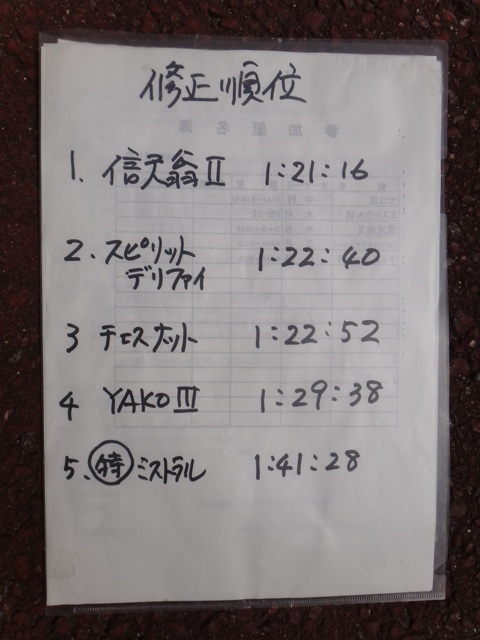 修正順位
1. 信天翁II 1:21:16
2. スピリット 1:22:40
デリファイ
3 チェスナット 1:22:52
4 YAKO III 1:29:38
5. 特 ミストラル 1:41:28
参加艇名簿